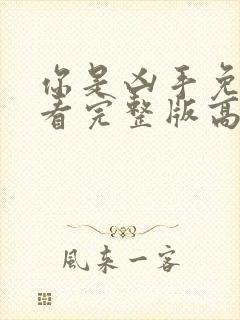 你是凶手免
看完整版高
風来一客